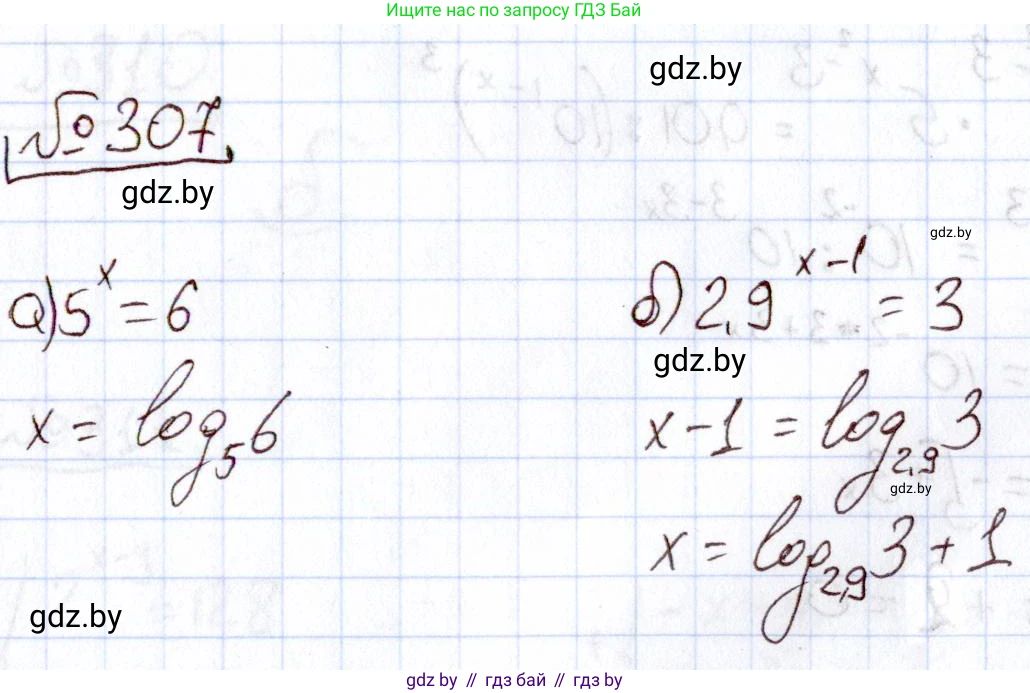 Ищите нас по запросу ГДЗ Бай
gdz.by
№ 307
gdz.by
gdz.by
а) 5^x = 6
б) 2,9^{x-1} = 3
gdz.by
x = log_5 6
x - 1 = log_{2,9} 3
gdz.by
x = log_{2,9} 3 + 1
gdz.by
gdz.by // гдз бай // гдз by